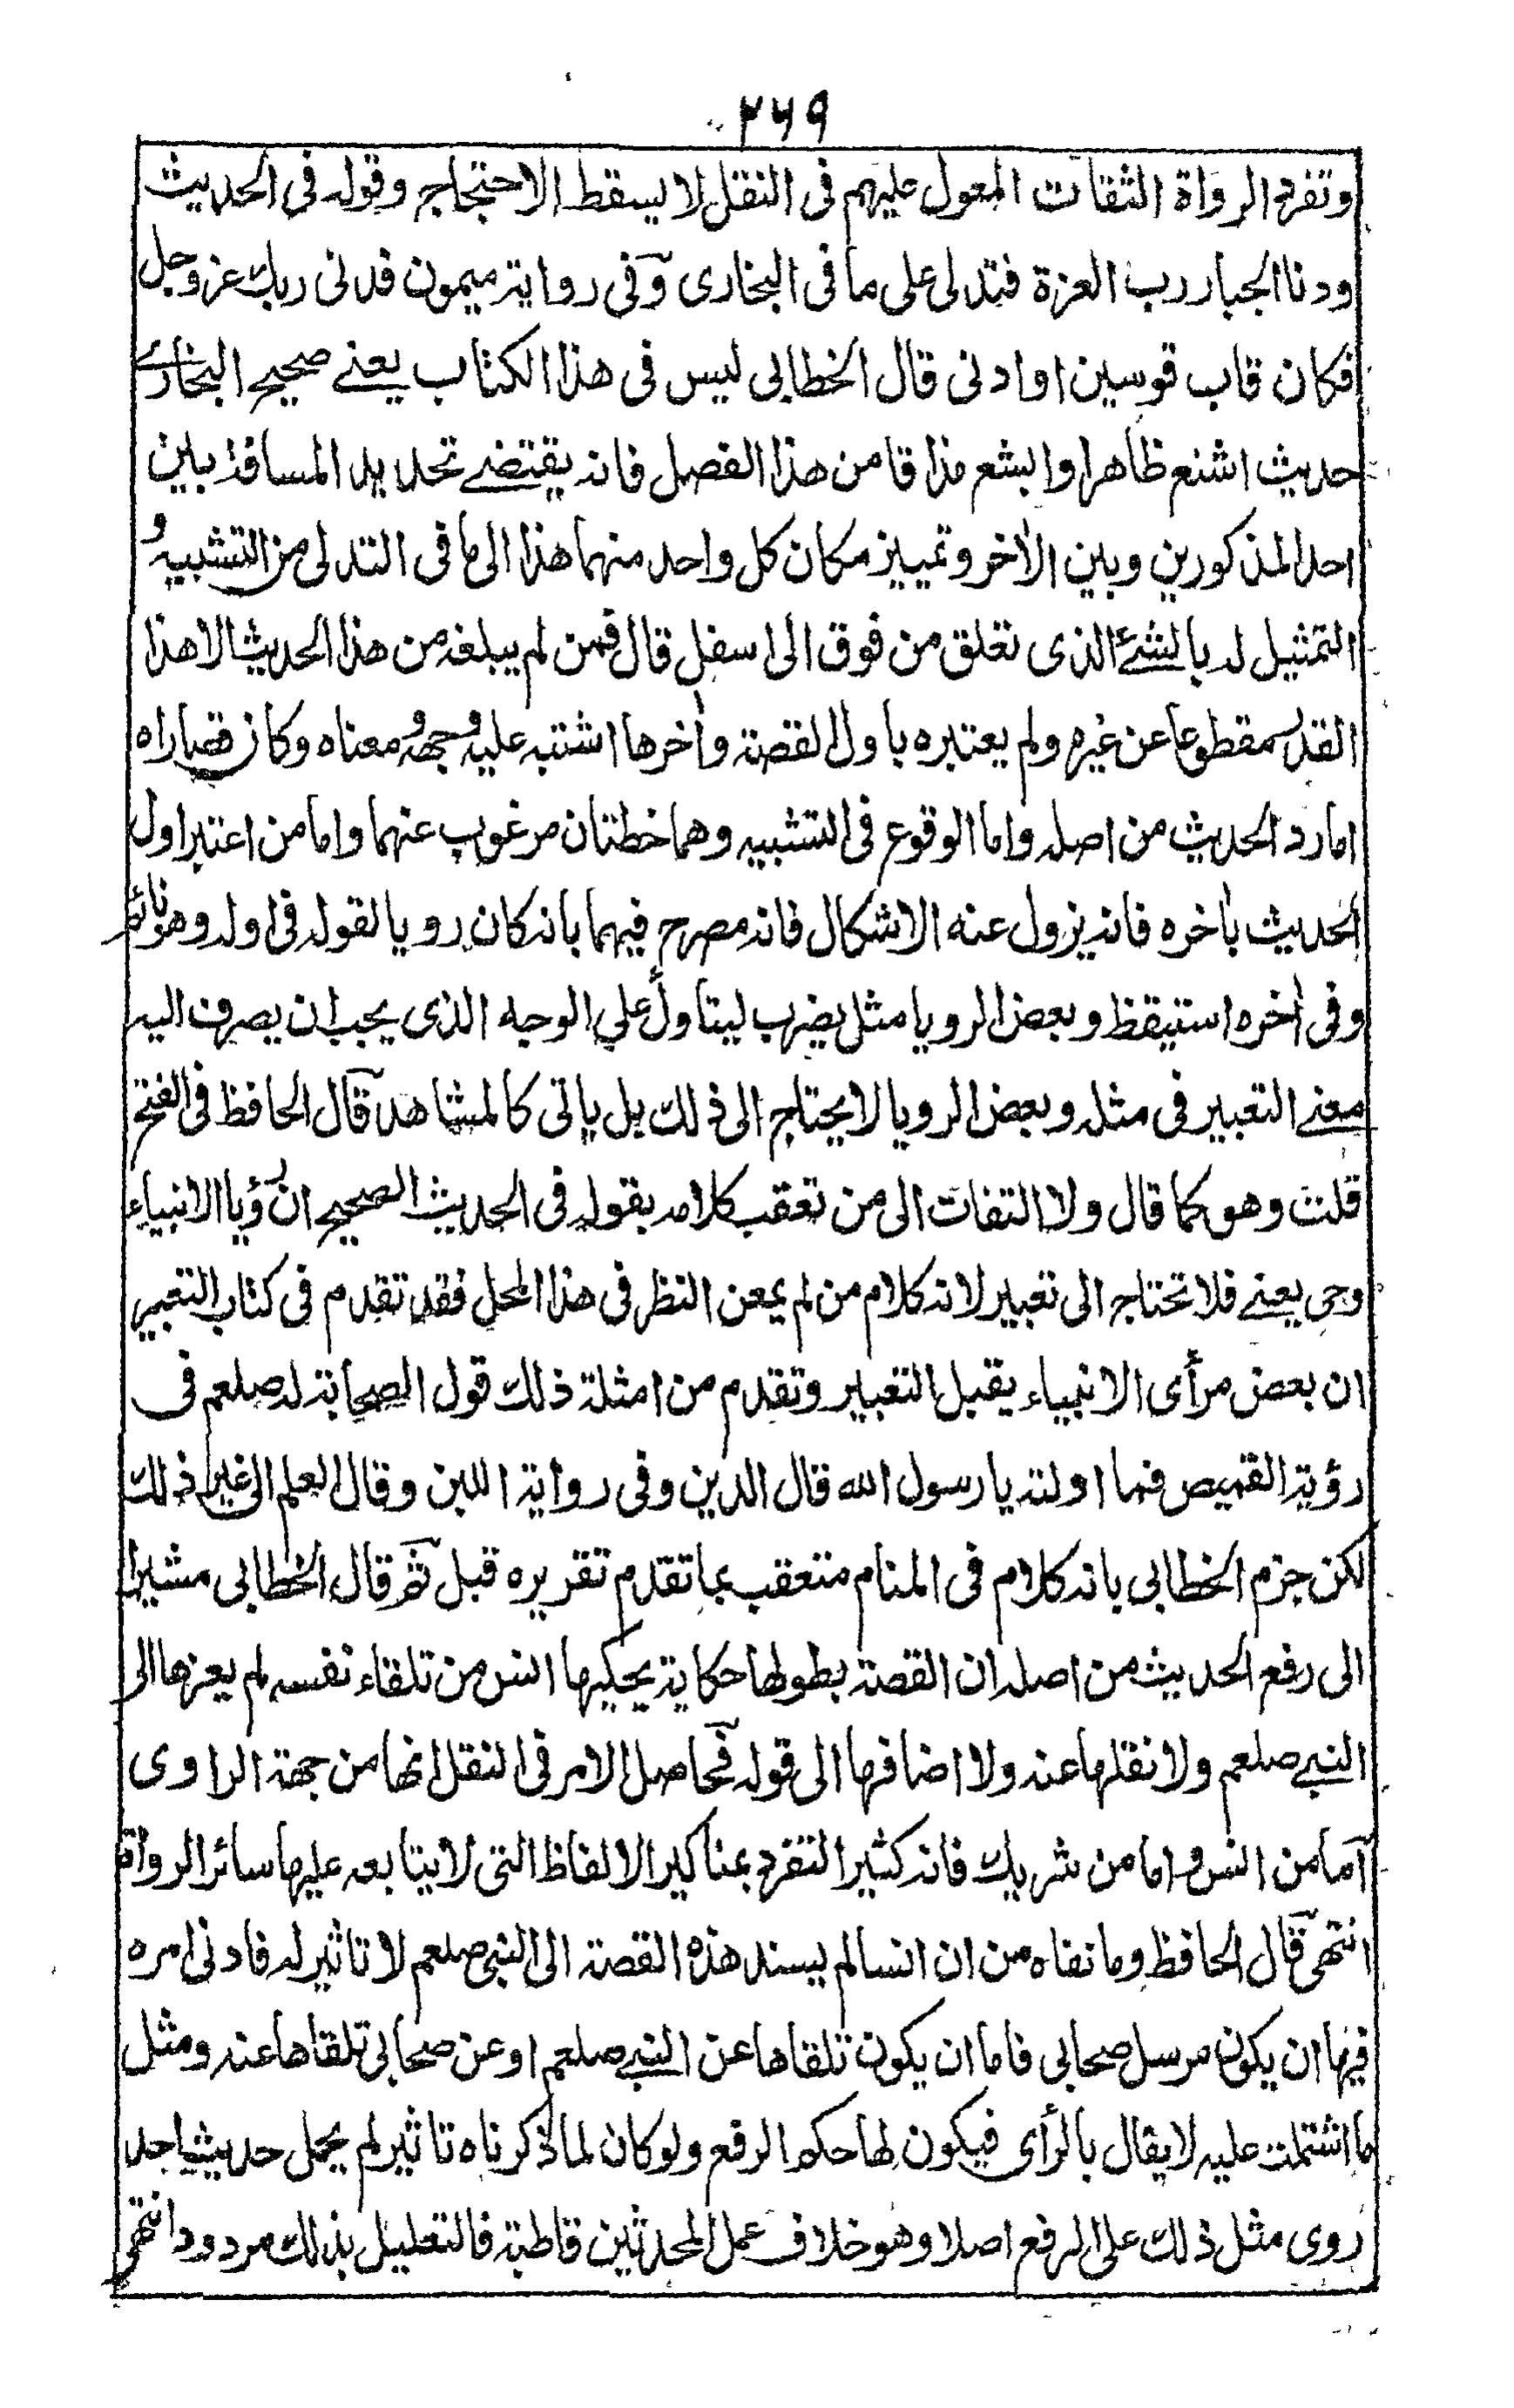 ۲۶۹
وتفرد الرواة الثقات المعول عليهم فى النقل لا يسقط الاحتجاج وقوله فى الحديث
ودنا الجبار رب العزة فتدلى على ما فى البخارى وفى رواية ميمون فدنى ربك عز وجل
فكان قاب قوسين او ادنى قال الخطابى ليس فى هذا الكتاب يعنے صحيح البخارے
حديث اشنع ظاهرا وابشع مذاقا من هذا الفصل فانه يقتضے تحديد المسافة بين
احد المذكورين وبين الاٰخر وتمييز مكان كل واحد منهما هذا الى ما فى التدلى من التشبيه و
التمثيل له بالشئ الذى تعلق من فوق الى اسفل قال فمن لم يبلغه من هذا الحديث الا هذا
القدر مقطوعا عن غيره ولم يعتبره باول القصة واٰخرها اشتبه عليه وجهه ومعناه وكان قصاراه
اما رد الحديث من اصله واما الوقوع فى التشبيه وهما خطتان مرغوب عنهما واما من اعتبر اول
الحديث باٰخره فانه يزول عنه الاشكال فانه مصرح فيهما بانه كان رويا لقوله فى اوله وهو نائم
وفى اٰخره استيقظ وبعض الرويا مثل يضرب ليتاول على الوجه الذى يجب ان يصرف اليه
معنے التعبير فى مثله وبعض الرويا لا يحتاج الى ذلك بل ياتى كالمشاهد قال الحافظ فى الفتح
قلت وهو كما قال ولا التفات الى من تعقب كلامه بقوله فى الحديث الصحيح ان رؤيا الانبياء
وحى يعنے فلا تحتاج الى تعبير لانه كلام من لم يمعن النظر فى هذا المحل فقد تقدم فى كتاب التعبير
ان بعض مرأى الانبياء يقبل التعبير وتقدم من امثلة ذلك قول الصحابة له صلعم فى
رؤية القميص فما اولته يا رسول الله قال الدين وفى رواية اللبن وقال العلم الى غير ذلك
لكن جزم الخطابى بانه كلام فى المنام متعقب بما تقدم تقريره قبل ثم قال الخطابى مشيرا
الى رفع الحديث من اصله ان القصة بطولها حكاية يحكيها انس من تلقاء نفسه لم يعزها الى
النبے صلعم ولا نقلها عنه ولا اضافها الى قوله فحاصل الامر فى النقل انها من جهة الراوى
اما من انس واما من شريك فانه كثير التفرد بمناكير الالفاظ التى لا يتابعه عليها سائر الرواة
انتهى قال الحافظ وما نفاه من ان انسا لم يسند هذه القصة الى النبى صلعم لا تاثير له فادنى امره
فيها ان يكون مرسل صحابى فاما ان يكون تلقاها عن النبے صلعم او عن صحابى تلقاها عنه ومثل
ما اشتملت عليه لا يقال بالرأى فيكون لها حكم الرفع ولو كان لما ذكرناه تاثير لم يحمل حديث احد
روى مثل ذلك على الرفع اصلا وهو خلاف عمل المحدثين قاطبة فالتعليل بذلك مردود انتهى